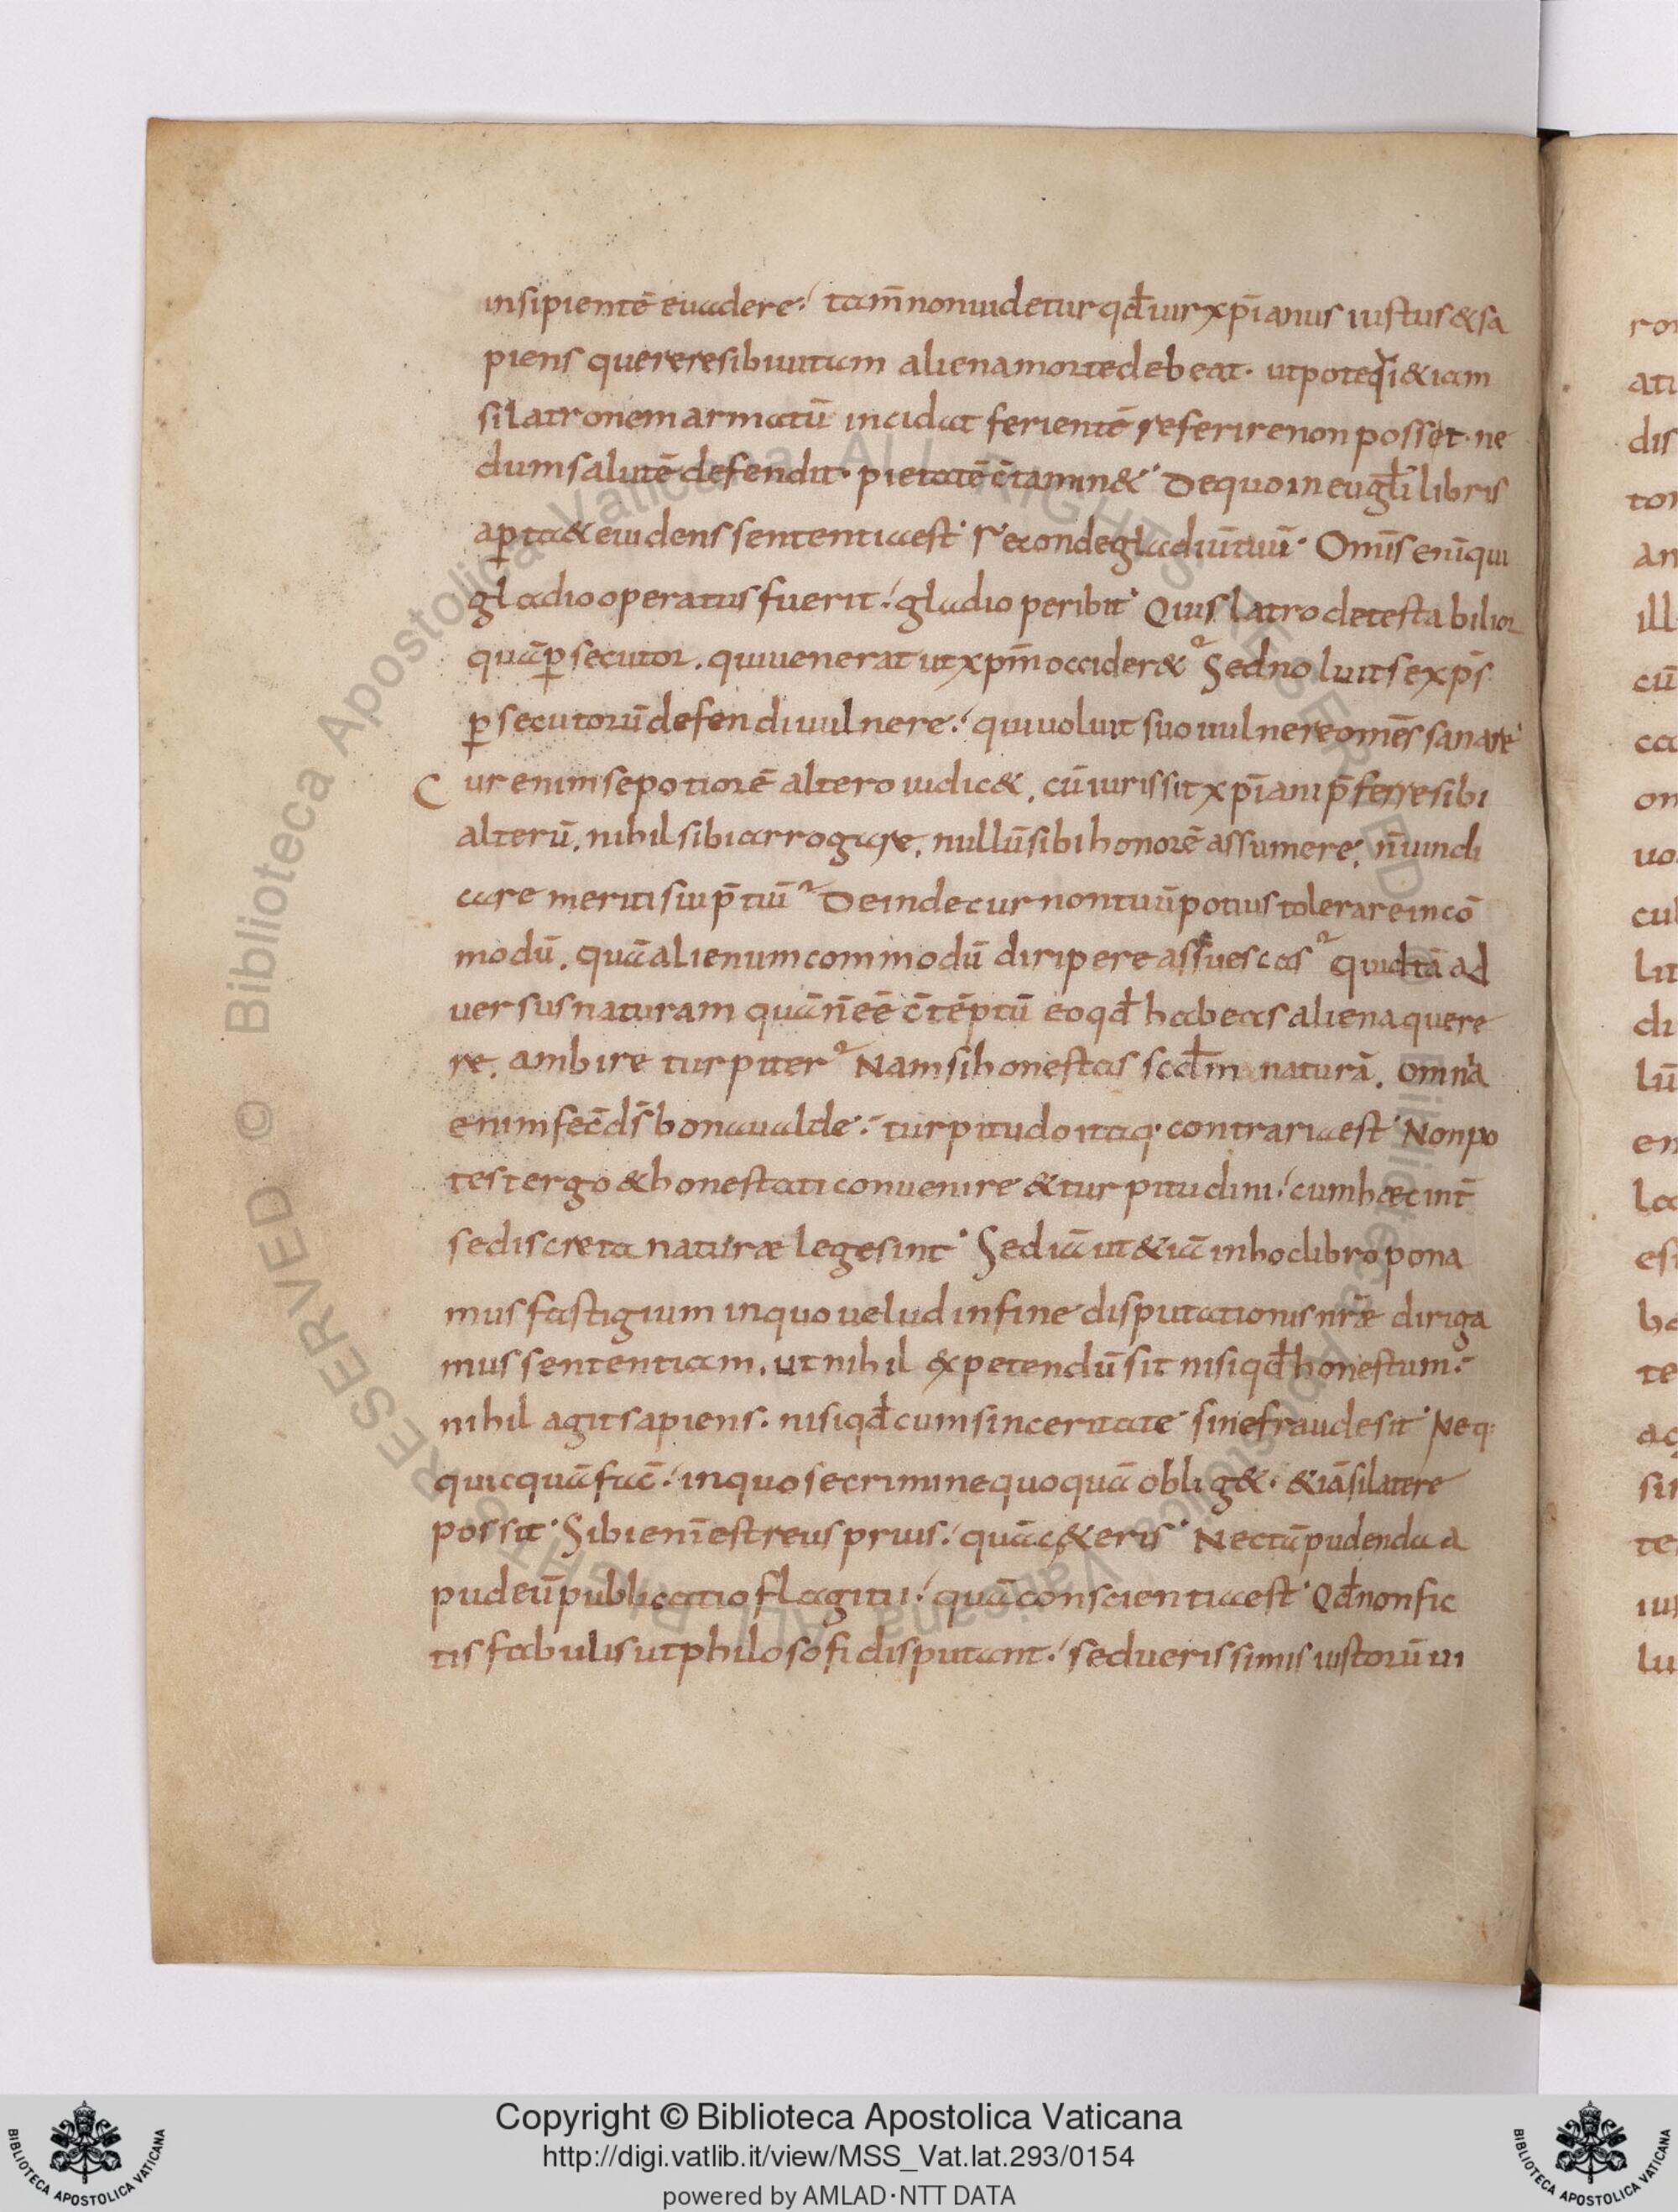 insipientē euadere. tam̄ non uidetur qđ uir xp̄ianus iustus & sa
piens querere sibi uitam aliena morte debeat. utpote qi & iam
si latronem armatū incidat ferientē referire non posset. ne
dum salutē defendit. pietatē c̄tamin& De quo in eugl̄i libris
aꝑta & euidens sententia est Recondegladiū tuū. Omīs enī qui
gladio operatus fuerit. gladio peribit Quis latro detestabilior
quā ꝑsecutor. qui uenerat ut xp̄m occider& Sed noluit se xp̄s
ꝑsecutorū defendi uulnere. qui uoluit suo uulnere omēs sanare
Cur enim se potiorē altero iudic&. cū uiri sit xp̄iani p̄ferre sibi
alterū. nihil sibi arrogare. nullū sibi honorē assumere. n̄ uindi
care meriti sui p̄tiū Deinde cur non tuū potius tolerare incō
modū. quā alienum commodū diripere assuescas quid tā ad
uersus naturam quā n̄ eē c̄tēptū eo qđ habeas aliena quere
re. ambire turpiter Nam si honestas scđm naturā. omnia
enim fec̄ ds̄ bona ualde. turpitudo itaq; contraria est Non po
test ergo & honestati conuenire & turpitudini. cum hæc int̄
se discreta naturæ lege sint Sed iā ut & iā in hoc libro pona
mus fastigium in quo uelud in fine disputationis nr̄æ diriga
mus sententiam. ut nihil expetendū sit nisi qđ honestum.
nihil agit sapiens. nisi qđ cum sinceritate sine fraude sit Neq;
quicquā fac̄. in quo se crimine quoquā oblig&. & iā si latere
possit Sibi enī est reus prius. quā c&eris Nec tā pudenda a
pud eū publicatio flagitii. quā conscientia est Qđ non fic
tis fabulis ut philosofi disputant. sed uerissimis iustorū ui
ro
ati
dis
tor
an
ill
cū
ca
on
uo
cul
lit
di
lū
en
la
es
ba
te
ac
sin
te
ius
lu
Copyright © Biblioteca Apostolica Vaticana
http://digi.vatlib.it/view/MSS_Vat.lat.293/0154
powered by AMLAD·NTT DATA
BIBLIOTECA APOSTOLICA VATICANA
BIBLIOTECA APOSTOLICA VATICANA